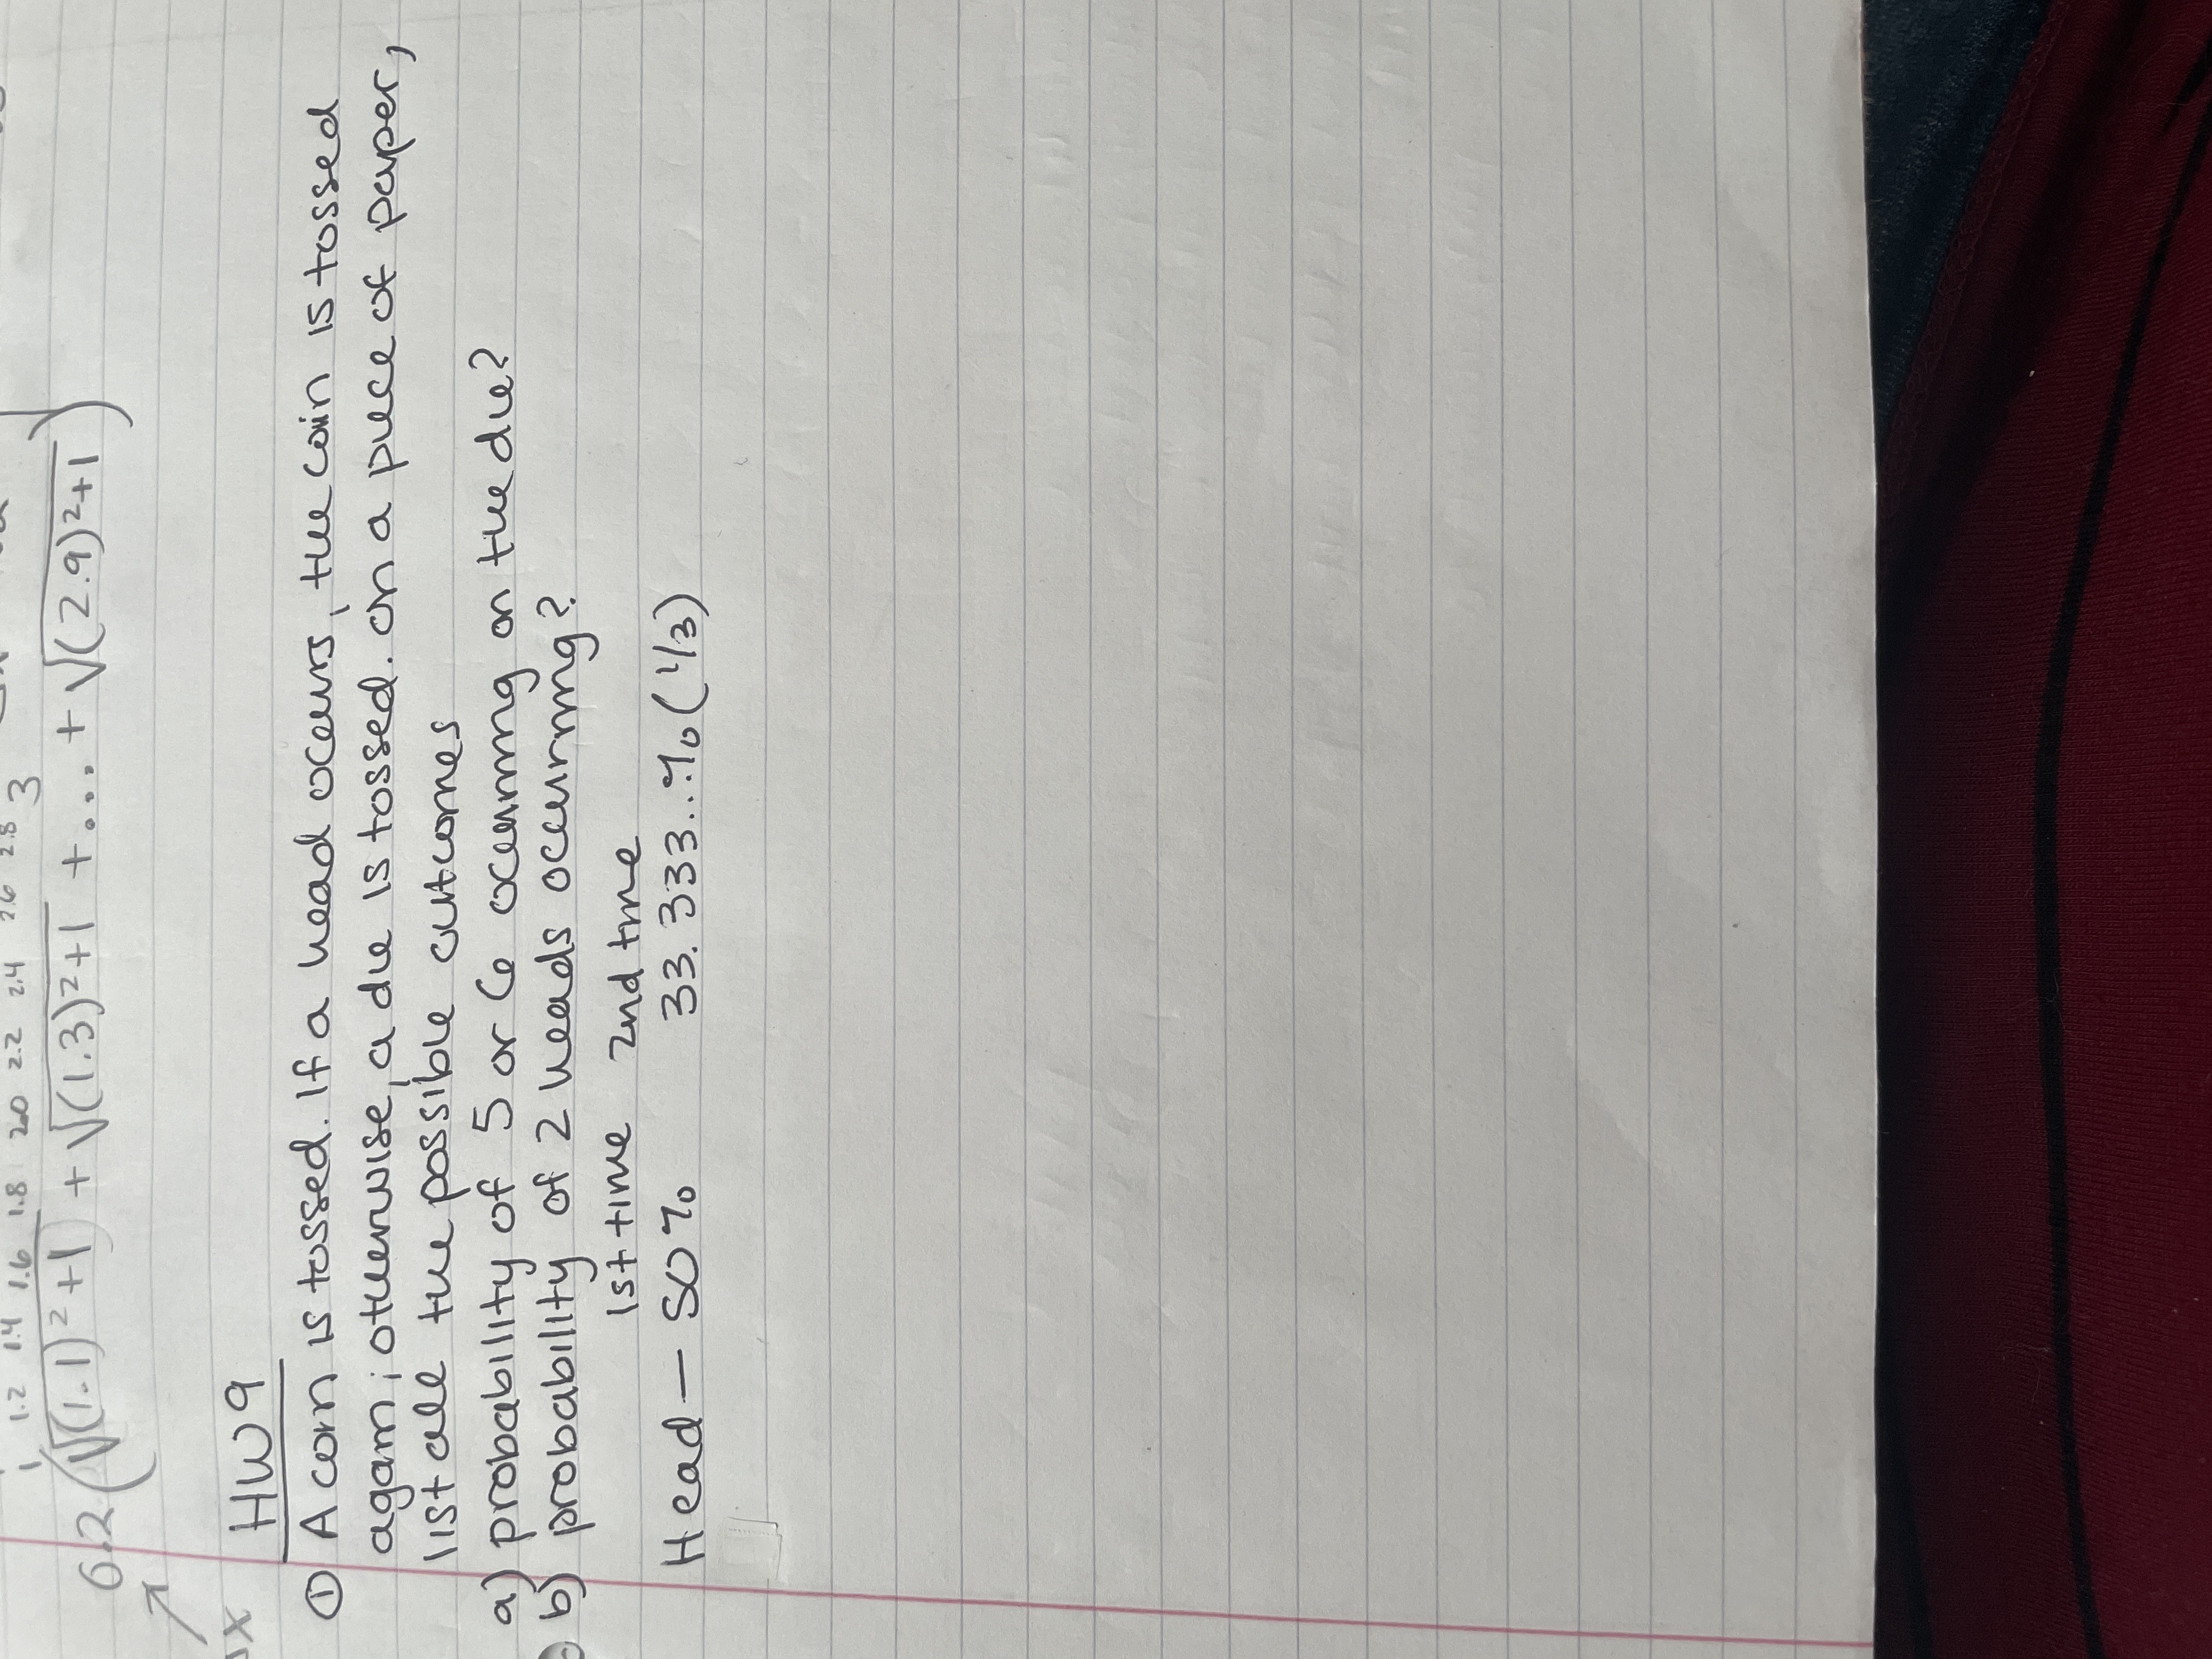 1 1.2 1.4 1.6 1.8 20 2.2 2.4 2.6 2.8 3
0.2(√(1.1)²+1 + √(1.3)²+1 + .... + √(2.9)²+1)
HW 9
① A coin is tossed. If a head occurs, the coin is tossed
again; otherwise, a die is tossed. on a piece of paper,
list all the possible outcomes
a) probability of 5 or 6 occurring on the die?
b) probability of 2 heads occurring?
1st time 2nd time
Head — 50% 33.333...% (1/3)